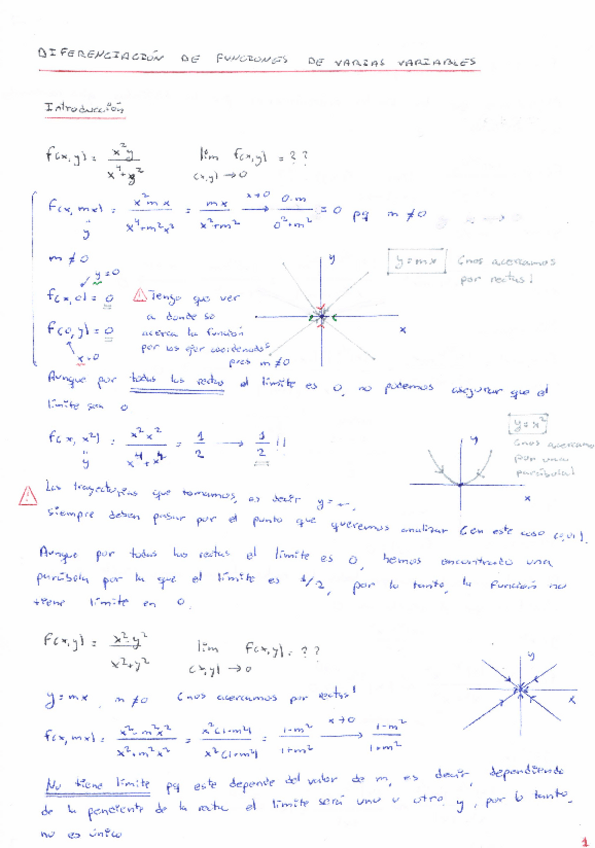 DIFERENCIACIÓN DE FUNCIONES DE VARIAS VARIABLES
Introducción
f(x,y) = x²y / x⁴+y² lim (x,y)→0 f(x,y) = ??
f(x,mx) = x²mx / x⁴+m²x² = mx / x²+m² x→0 → 0·m / 0²+m² = 0 pq m≠0
y
m≠0
y=0
y=mx (nos acercamos por rectas)
f(x,0) = 0
f(0,y) = 0
x=0
Tengo que ver
a donde se
acerca la función
por los ejes coordenados
pues m≠0
y
x
Aunque por todas las rectas el límite es 0, no podemos asegurar que el
límite sea 0
f(x,x²) = x²x² / x⁴+x⁴ = 1/2 → 1/2 !!
y
y=x²
(nos acercamos
por una
parábola)
y
x
Las trayectorias que tomamos, es decir y=...,
siempre deben pasar por el punto que queremos analizar (en este caso (0,0)).
Aunque por todas las rectas el límite es 0, hemos encontrado una
parábola por la que el límite es 1/2, por lo tanto, la función no
tiene límite en 0.
f(x,y) = x²-y² / x²+y² lim (x,y)→0 f(x,y) = ??
y
x
y=mx, m≠0 (nos acercamos por rectas)
f(x,mx) = x²-m²x² / x²+m²x² = x²(1-m²) / x²(1+m²) = 1-m² / 1+m² x→0 → 1-m² / 1+m²
No tiene límite pq este depende del valor de m, es decir, dependiendo
de la pendiente de la recta el límite será uno u otro y, por lo tanto,
no es único
1